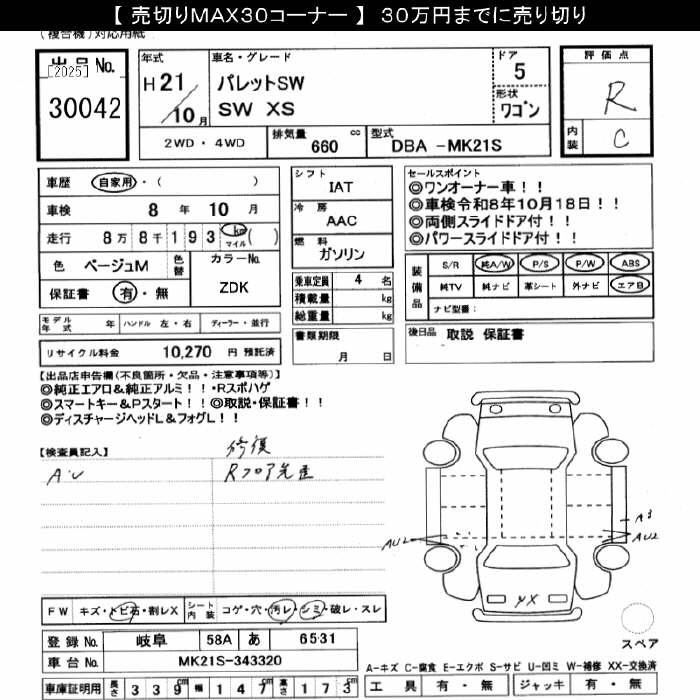 【 売切りMAX30コーナー 】 30万円までに売り切り
(複合機) 対応用紙
出品 No.
[2025]
30042
年式
H 21
10 月
車名・グレード
パレットSW
SW XS
ドア
5
形状
ワゴン
評価点
R
内装
C
2WD ・ 4WD
排気量 660 cc
型式 DBA -MK21S
車歴 自家用 ・ ( )
車検 8 年 10 月
走行 8万 8千 1 9 3 km マイル ( )
色 ベージュM 色替
カラーNo. ZDK
保証書 有 ・ 無
モデル年式 年 ハンドル 左・右 ディーラー・並行
リサイクル料金 10,270 円 預託済
シフト
IAT
冷房
AAC
燃料
ガソリン
乗車定員 4 名
積載量 kg
総重量 kg
書類期限
月 日
セールスポイント
◎ワンオーナー車！！
◎車検令和8年10月18日！！
◎両側スライドドア付！！
◎パワースライドドア付！！
装備品
S/R 純A/W P/S P/W ABS
純TV 純ナビ 革シート 外ナビ エアB
ナビ型番：
後日品 取説 保証書
【出品店申告欄(不良箇所・欠品・注意事項等)】
◎純正エアロ&純正アルミ！！・Rスポハゲ
◎スマートキー&Pスタート！！◎取説・保証書！！
◎ディスチャージヘッドL&フォグL！！
【検査員記入】
A・U
修復
Rフロア先歪
A3
AU2
AU2
XX
スペア
FW キズ・トビ石・割レX
シート内装 コゲ・穴・汚レ・シミ・破レ・スレ
登録 No. 岐阜 58A あ 6531
車台 No. MK21S-343320
車庫証明用 長さ 3 3 9 cm 幅 1 4 7 cm 高さ 1 7 3 cm
A-キズ C-腐食 E-エクボ S-サビ U-凹ミ W-補修 XX-交換済
工具 有 ・ 無 ジャッキ 有 ・ 無